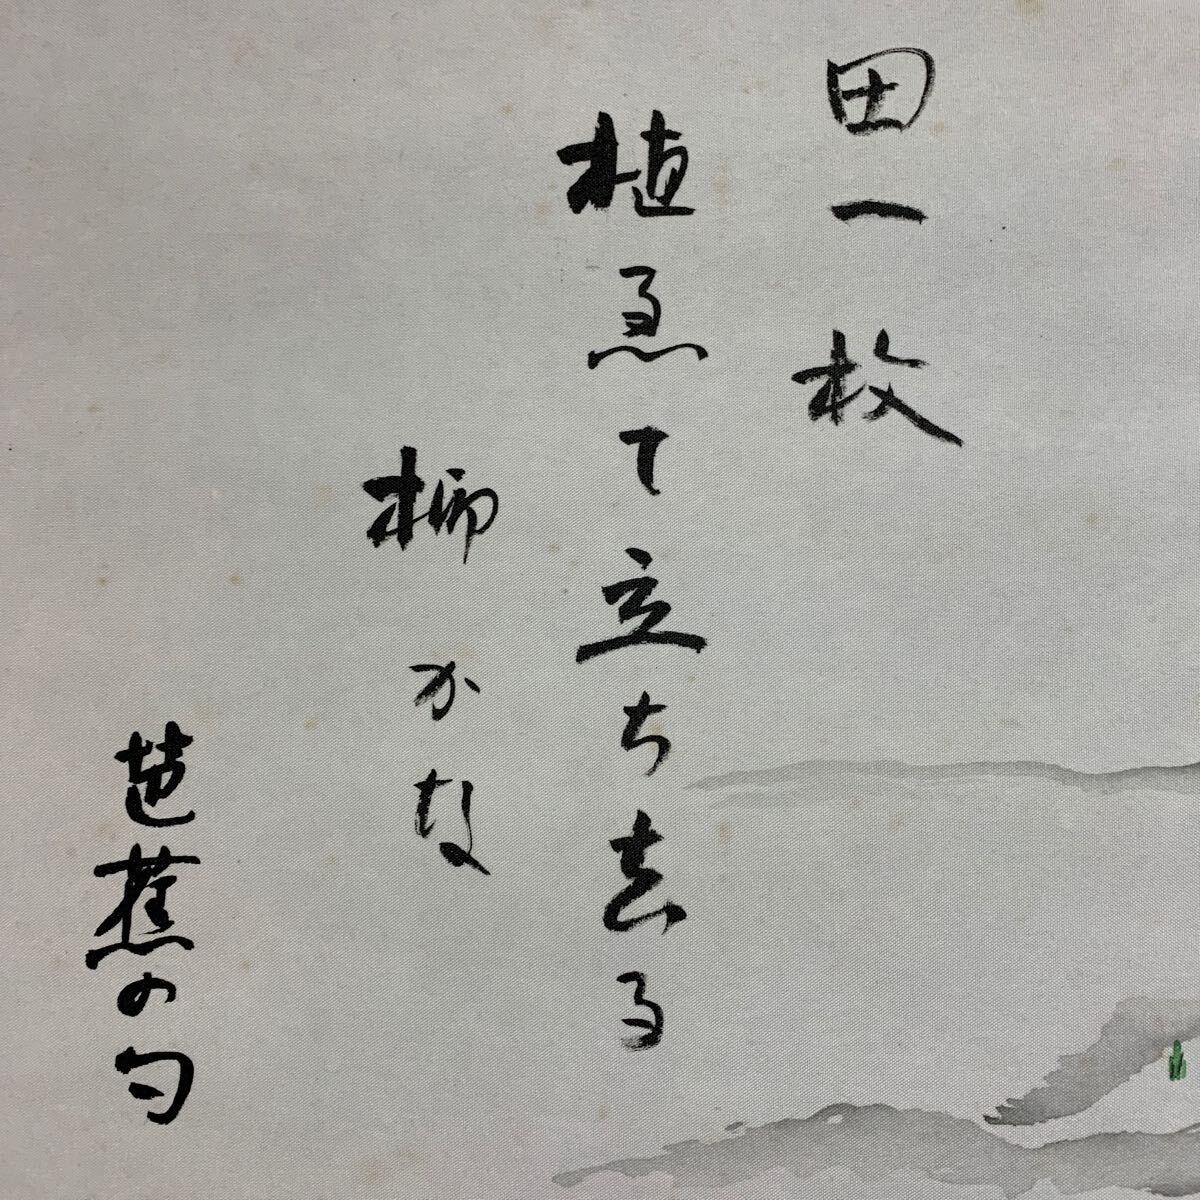 田一枚
植ゑて立ち去る
柳かな
芭蕉の句